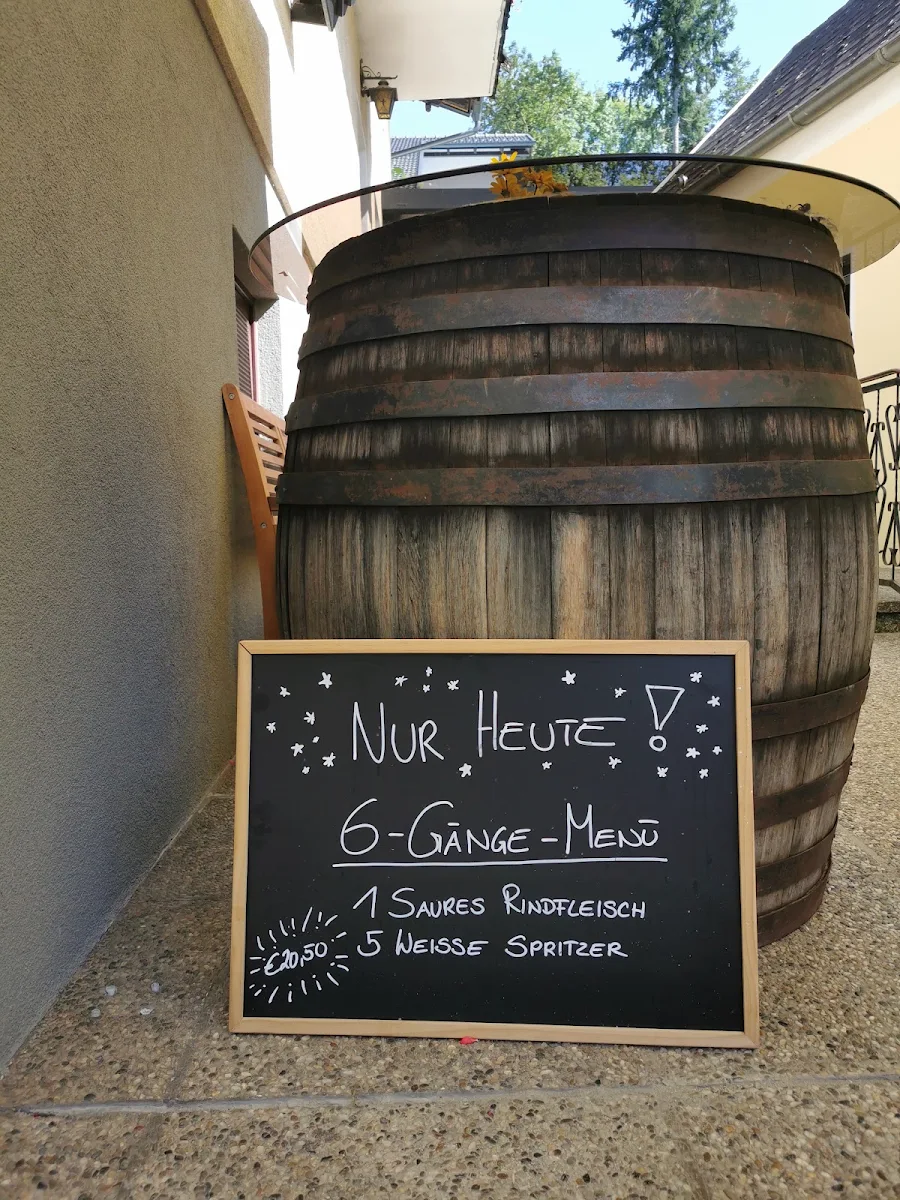 Nur Heute!
6-Gänge-Menü
1 Saures Rindfleisch
5 Weisse Spritzer
€20,50